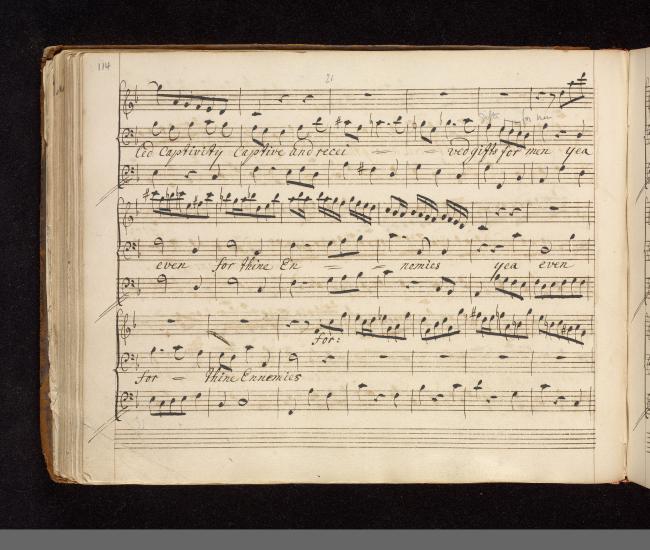 114
21
gifts for men
led Captivity Captive and recei = = ved gifts for men yea
even for thine En = = nomies yea even
for:
for = thine Ennemies